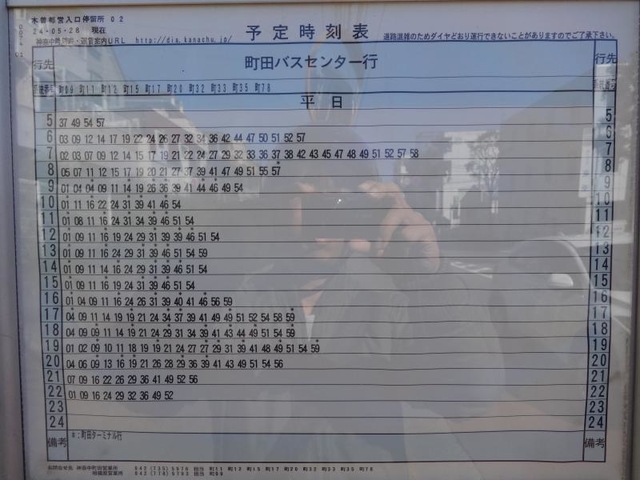 木曽都営入口停留所 02
24-05-28 現在
http://dia.kanachu.jp/
予定時刻表
道路混雑のためダイヤどおり運行できないことがありますのでご了承下さい。
行先 町田バスセンター行 行先
町09 町11 町12 町15 町17 町20 町32 町33 町35 町78
平日
5 37 49 54 57 5
6 03 09 12 14 17 19 22 24 26 27 32 34 36 42 44 47 50 51 52 57 6
7 02 03 07 09 12 14 15 17 19 21 22 24 27 29 32 33 36 37 38 42 43 45 47 48 49 51 52 57 58 7
8 05 07 11 12 15 17 19 20 21 27 37 39 41 47 49 51 55 57 8
9 01 04 04 09 11 14 19 26 36 39 41 44 46 49 54 9
10 01 11 16 22 24 31 39 41 46 54 10
11 01 08 11 16 24 31 34 39 46 51 54 11
12 01 09 11 16 19 24 29 31 39 39 46 51 54 12
13 01 09 11 16 24 29 31 39 46 51 54 59 13
14 01 09 11 14 16 24 29 31 39 46 51 54 14
15 01 09 11 16 24 29 31 39 46 51 54 15
16 01 04 09 11 14 16 24 26 31 39 40 41 46 56 59 16
17 04 09 11 14 19 19 21 24 34 37 39 41 49 49 51 52 54 58 59 17
18 04 09 09 11 14 19 21 24 29 31 34 39 41 43 44 49 51 54 59 18
19 01 02 09 10 11 18 19 19 21 24 27 27 29 31 39 41 48 49 51 54 59 19
20 04 06 09 13 16 21 26 28 29 36 39 41 43 49 51 54 56 20
21 07 09 16 22 26 29 36 41 49 52 56 21
22 01 09 16 24 29 32 36 49 52 22
23 23
24 24
備考 ※：町田ターミナル行 備考